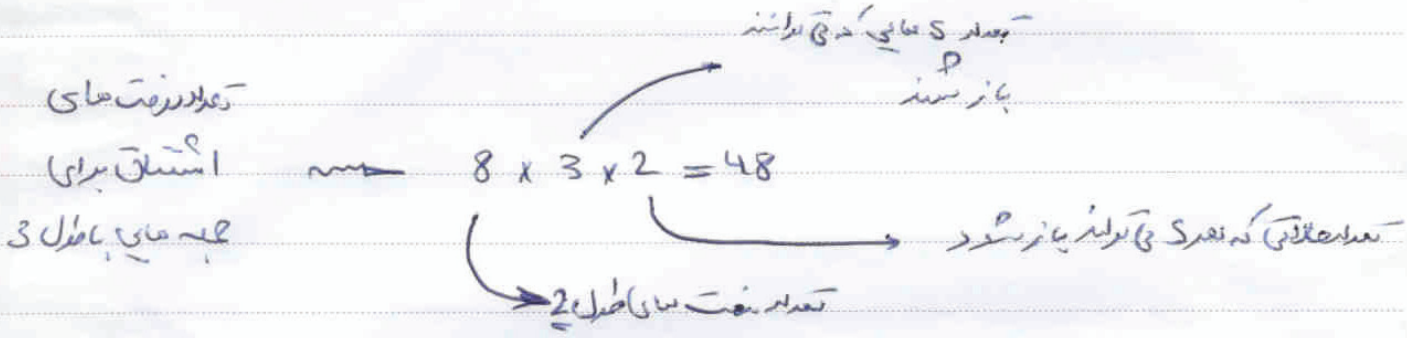 تعداد S هایی که می توانند
باز شوند
تعداد درخت های
اشتقاق برای
جمله های با طول 3
8 x 3 x 2 = 48
تعداد حالاتی که هر S می تواند باز شود
تعداد درخت های طول 2